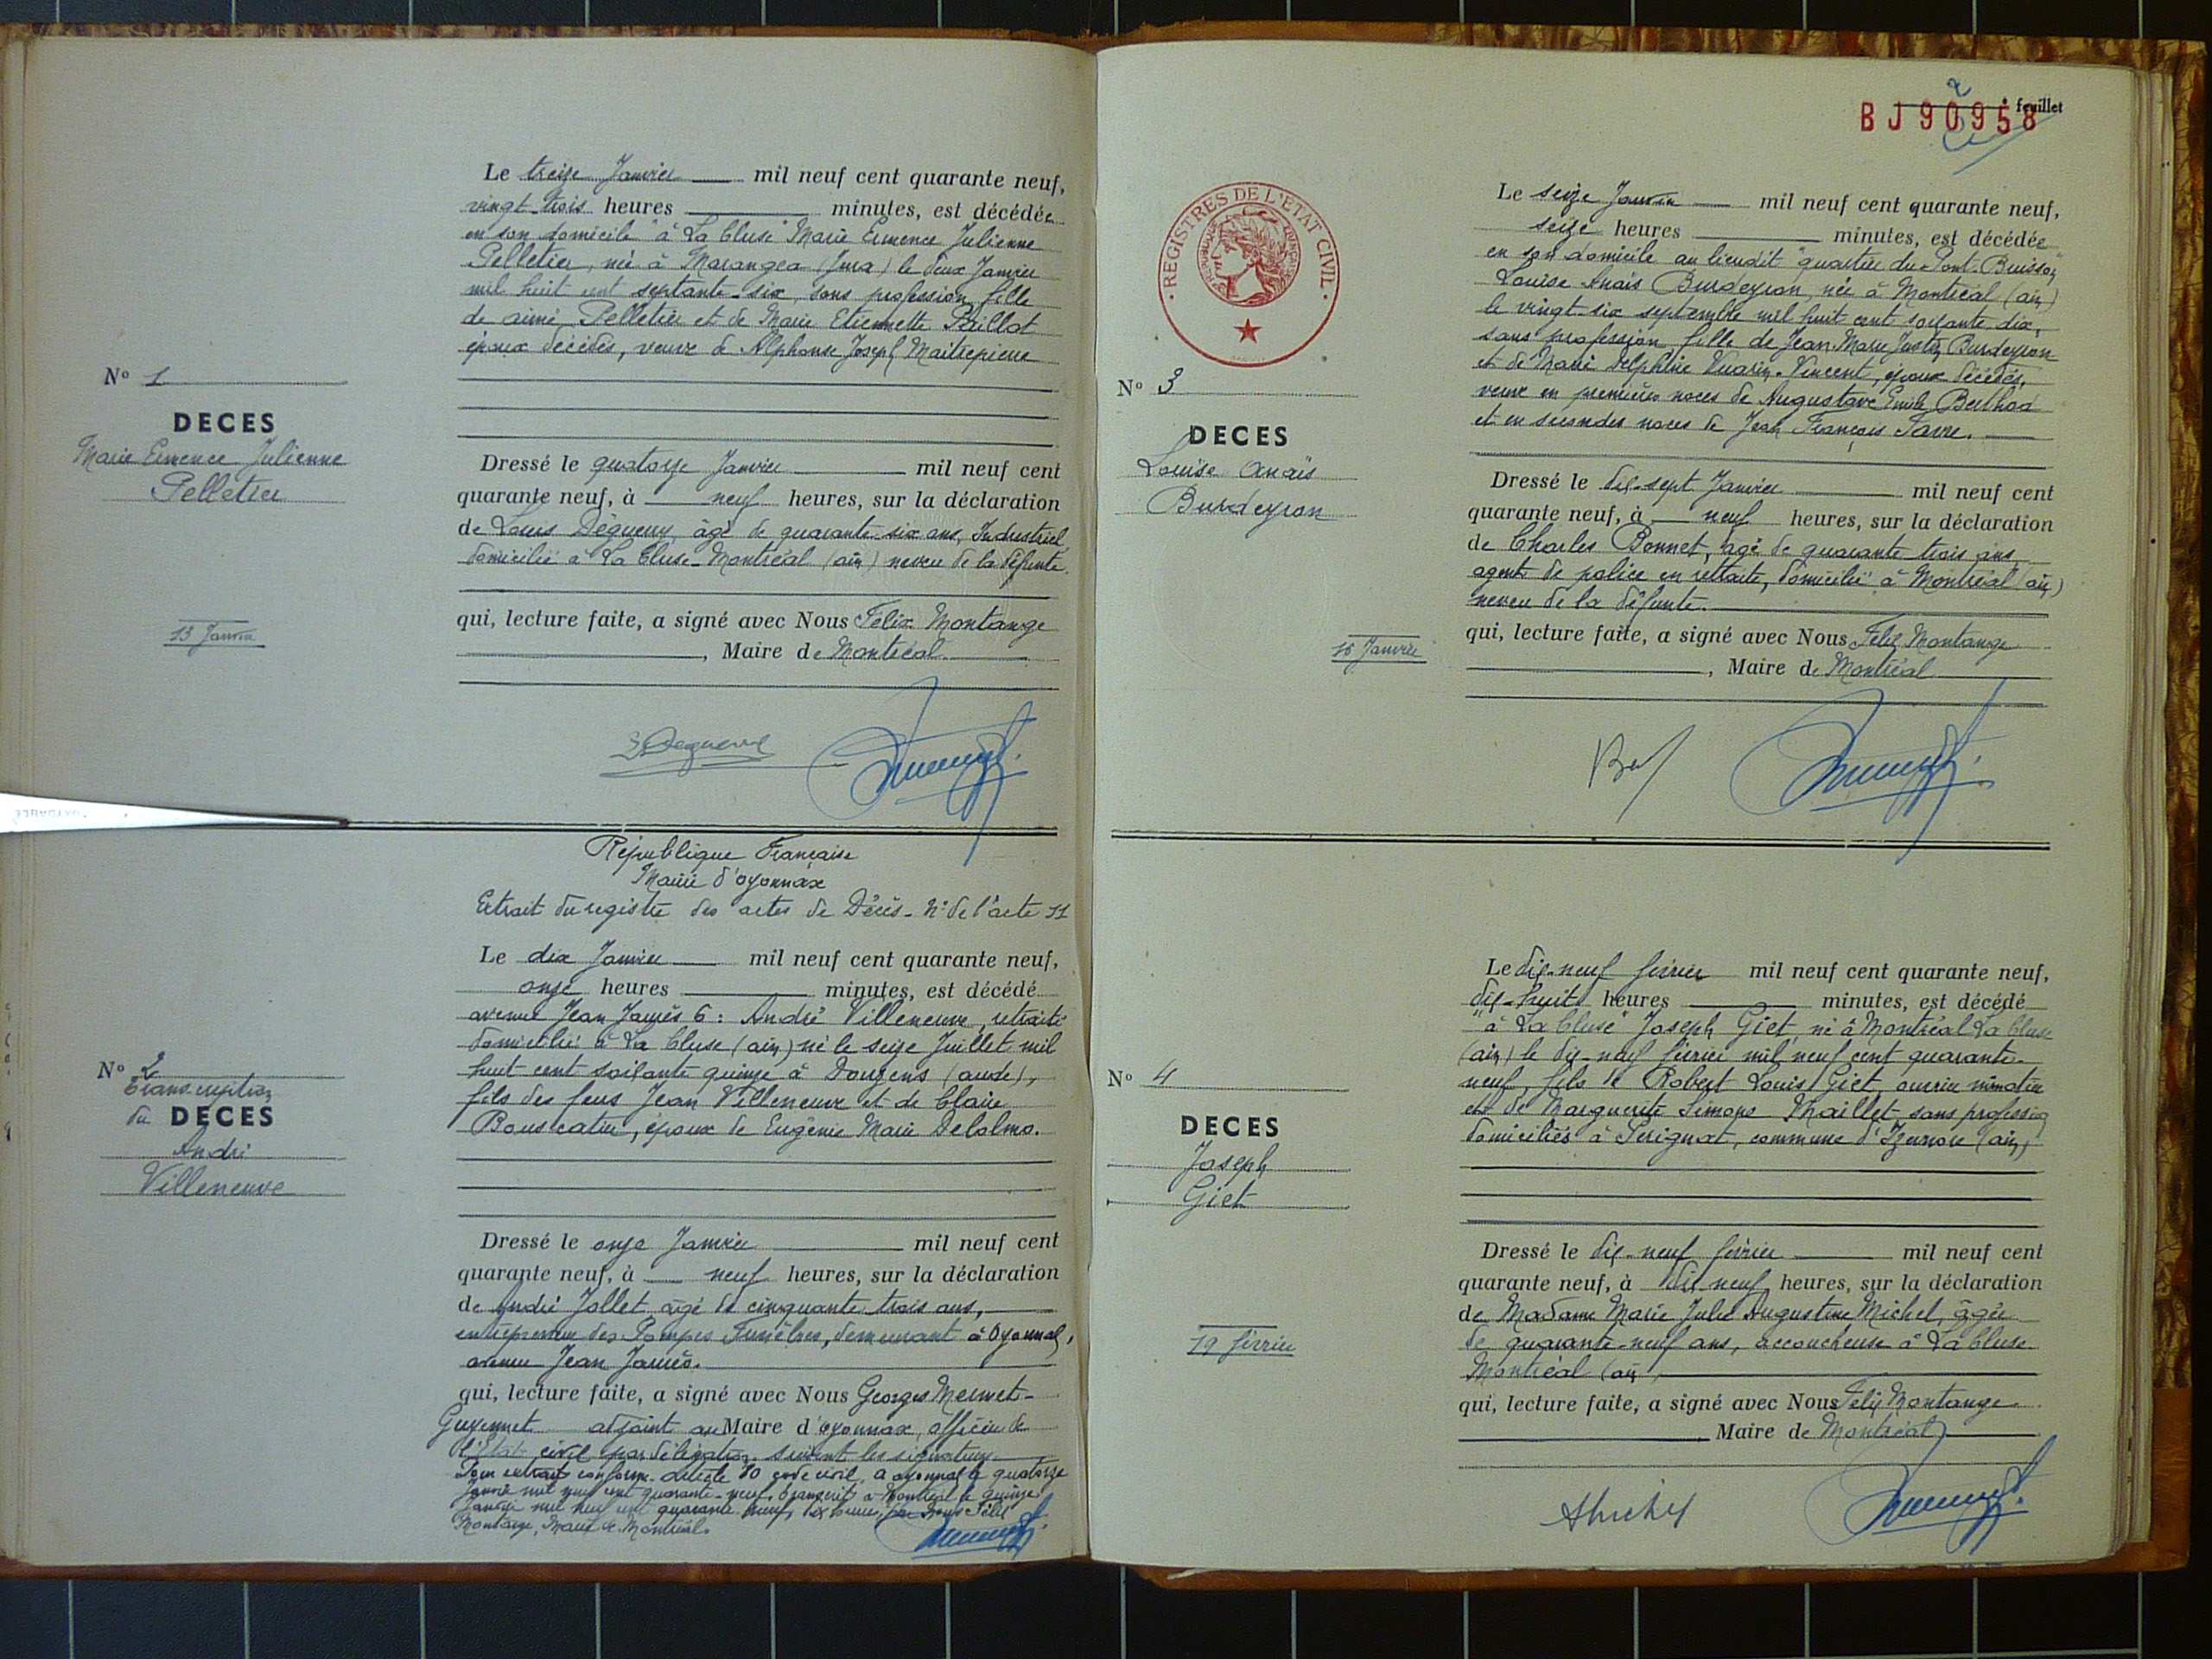 Le treize Janvier mil neuf cent quarante neuf,
vingt-trois heures minutes, est décédée
en son domicile "à La Cluse" Marie Ermence Julienne
Pelletier, née à Marangea (Jura) le deux Janvier
mil huit cent septante-six, sans profession, fille
de aimé Pelletier et de Marie Etiennette Paillot
époux décédés, veuve de Alphonse Joseph Maitrepierre
No 1
DECES
Marie Ermence Julienne
Pelletier
13 Janvier
Dressé le quatorze Janvier mil neuf cent
quarante neuf, à neuf heures, sur la déclaration
de Louis Dégueny, âgé de quarante-six ans, Industriel
domicilié à La Cluse-Montréal (ain) neveu de la défunte.
qui, lecture faite, a signé avec Nous Felix Montange
, Maire de Montréal
République Française
Mairie d'oyonnax
Extrait du registre des actes de Décès - No de l'acte 11
Le dix Janvier mil neuf cent quarante neuf,
onze heures minutes, est décédé
avenue Jean Jaurès 6 : André Villeneuve, retraité
domicilié à La Cluse (ain) né le seize Juillet mil
huit cent soixante quinze à Douzens (aude),
fils des feus Jean Villeneuve et de Claire
Bouscatier, époux de Eugénie Marie Delolmo.
No 2
Transcription
du DECES
André
Villeneuve
Dressé le onze Janvier mil neuf cent
quarante neuf, à neuf heures, sur la déclaration
de André Jallet, âgé de cinquante trois ans,
entrepreneur des Pompes Funèbres, demeurant à Oyonnax,
avenue Jean Jaurès.
qui, lecture faite, a signé avec Nous Georges Mermet-
Guyennet adjoint au Maire d'oyonnax, officier de
l'Etat civil par délégation. suivent les signatures.
Pour extrait conforme - article 80 code civil, a oyonnax le quatorze
Janvier mil neuf cent quarante-neuf, Transcrit à Montréal le quinze
Janvier mil neuf cent quarante neuf, dix heures, par Nous Félix
Montange, Maire de Montréal.
2
BJ90958 feuillet
REGISTRES DE L'ETAT CIVIL
Le seize Janvier mil neuf cent quarante neuf,
seize heures minutes, est décédée
en son domicile au lieudit "quartier du Pont-Buisson"
Louise Anaïs Burdeyron, née à Montréal (ain)
le vingt-six septembre mil huit cent soixante dix,
sans profession, fille de Jean-Marie Justin Burdeyron
et de Marie Delphine Vuarin-Vincent, époux décédés,
veuve en premières noces de Augustave Emile Berthod
et en secondes noces de Jean François Favre.
No 3
DECES
Louise Anaïs
Burdeyron
16 Janvier
Dressé le dix-sept Janvier mil neuf cent
quarante neuf, à neuf heures, sur la déclaration
de Charles Bonnet, âgé de quarante trois ans,
agent de police en retraite, domicilié à Montréal (ain)
neveu de la défunte.
qui, lecture faite, a signé avec Nous Felix Montange
, Maire de Montréal
Le dix-neuf février mil neuf cent quarante neuf,
dix-huit heures minutes, est décédé
"à La Cluse" Joseph Giet, né à Montréal La Cluse
(ain) le dix-neuf février mil neuf cent quarante-
neuf, fils de Robert Louis Giet, ouvrier
et de Marguerite Simone Maillet sans profession
domiciliés à Perignat, commune d'Izernore (ain)
No 4
DECES
Joseph
Giet
19 février
Dressé le dix-neuf février mil neuf cent
quarante neuf, à dix-neuf heures, sur la déclaration
de Madame Marie Julie Augustine Michel, âgée
de quarante-neuf ans, accoucheuse à La Cluse
Montréal (ain)
qui, lecture faite, a signé avec Nous Felix Montange
Maire de Montréal